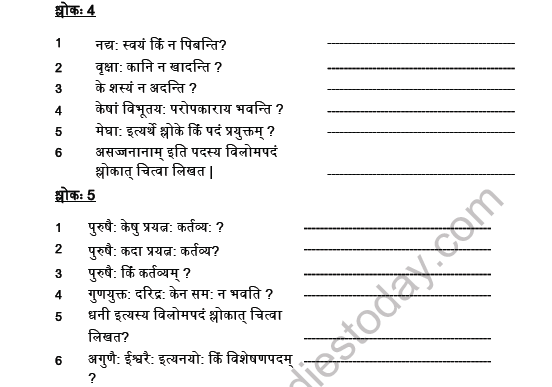 श्लोकः 4
1 नद्यः स्वयं किं न पिबन्ति?
2 वृक्षाः कानि न खादन्ति ?
3 के शस्यं न अदन्ति ?
4 केषां विभूतयः परोपकाराय भवन्ति ?
5 मेघाः इत्यर्थे श्लोके किं पदं प्रयुक्तम् ?
6 असज्जनानाम् इति पदस्य विलोमपदं
श्लोकात् चित्वा लिखत |
श्लोकः 5
1 पुरुषैः केषु प्रयत्नः कर्तव्यः ?
2 पुरुषैः कदा प्रयत्नः कर्तव्य?
3 पुरुषैः किं कर्तव्यम् ?
4 गुणयुक्तः दरिद्रः केन समः न भवति ?
5 धनी इत्यस्य विलोमपदं श्लोकात् चित्वा
लिखत?
6 अगुणैः ईश्वरैः इत्यनयोः किं विशेषणपदम्
?
diestoday.com